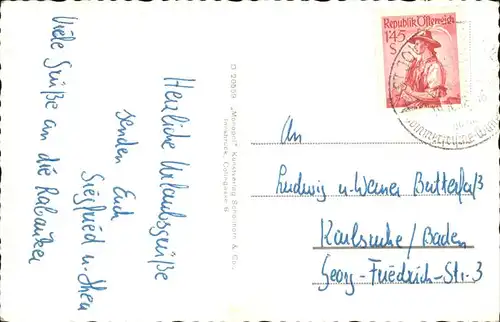 Herzliche Urlaubsgrüße
senden Euch
Siegfried u. Thea
Viele Grüße an die Rabauken
D 20859 „Monopol" Kunstverlag Schöllhorn & Co.,
Innsbruck,
Republik Österreich
1.45
S
An
Ludwig u. Werner Butterfaß
Karlsruhe/Baden
Georg-Friedrich-Str. 3